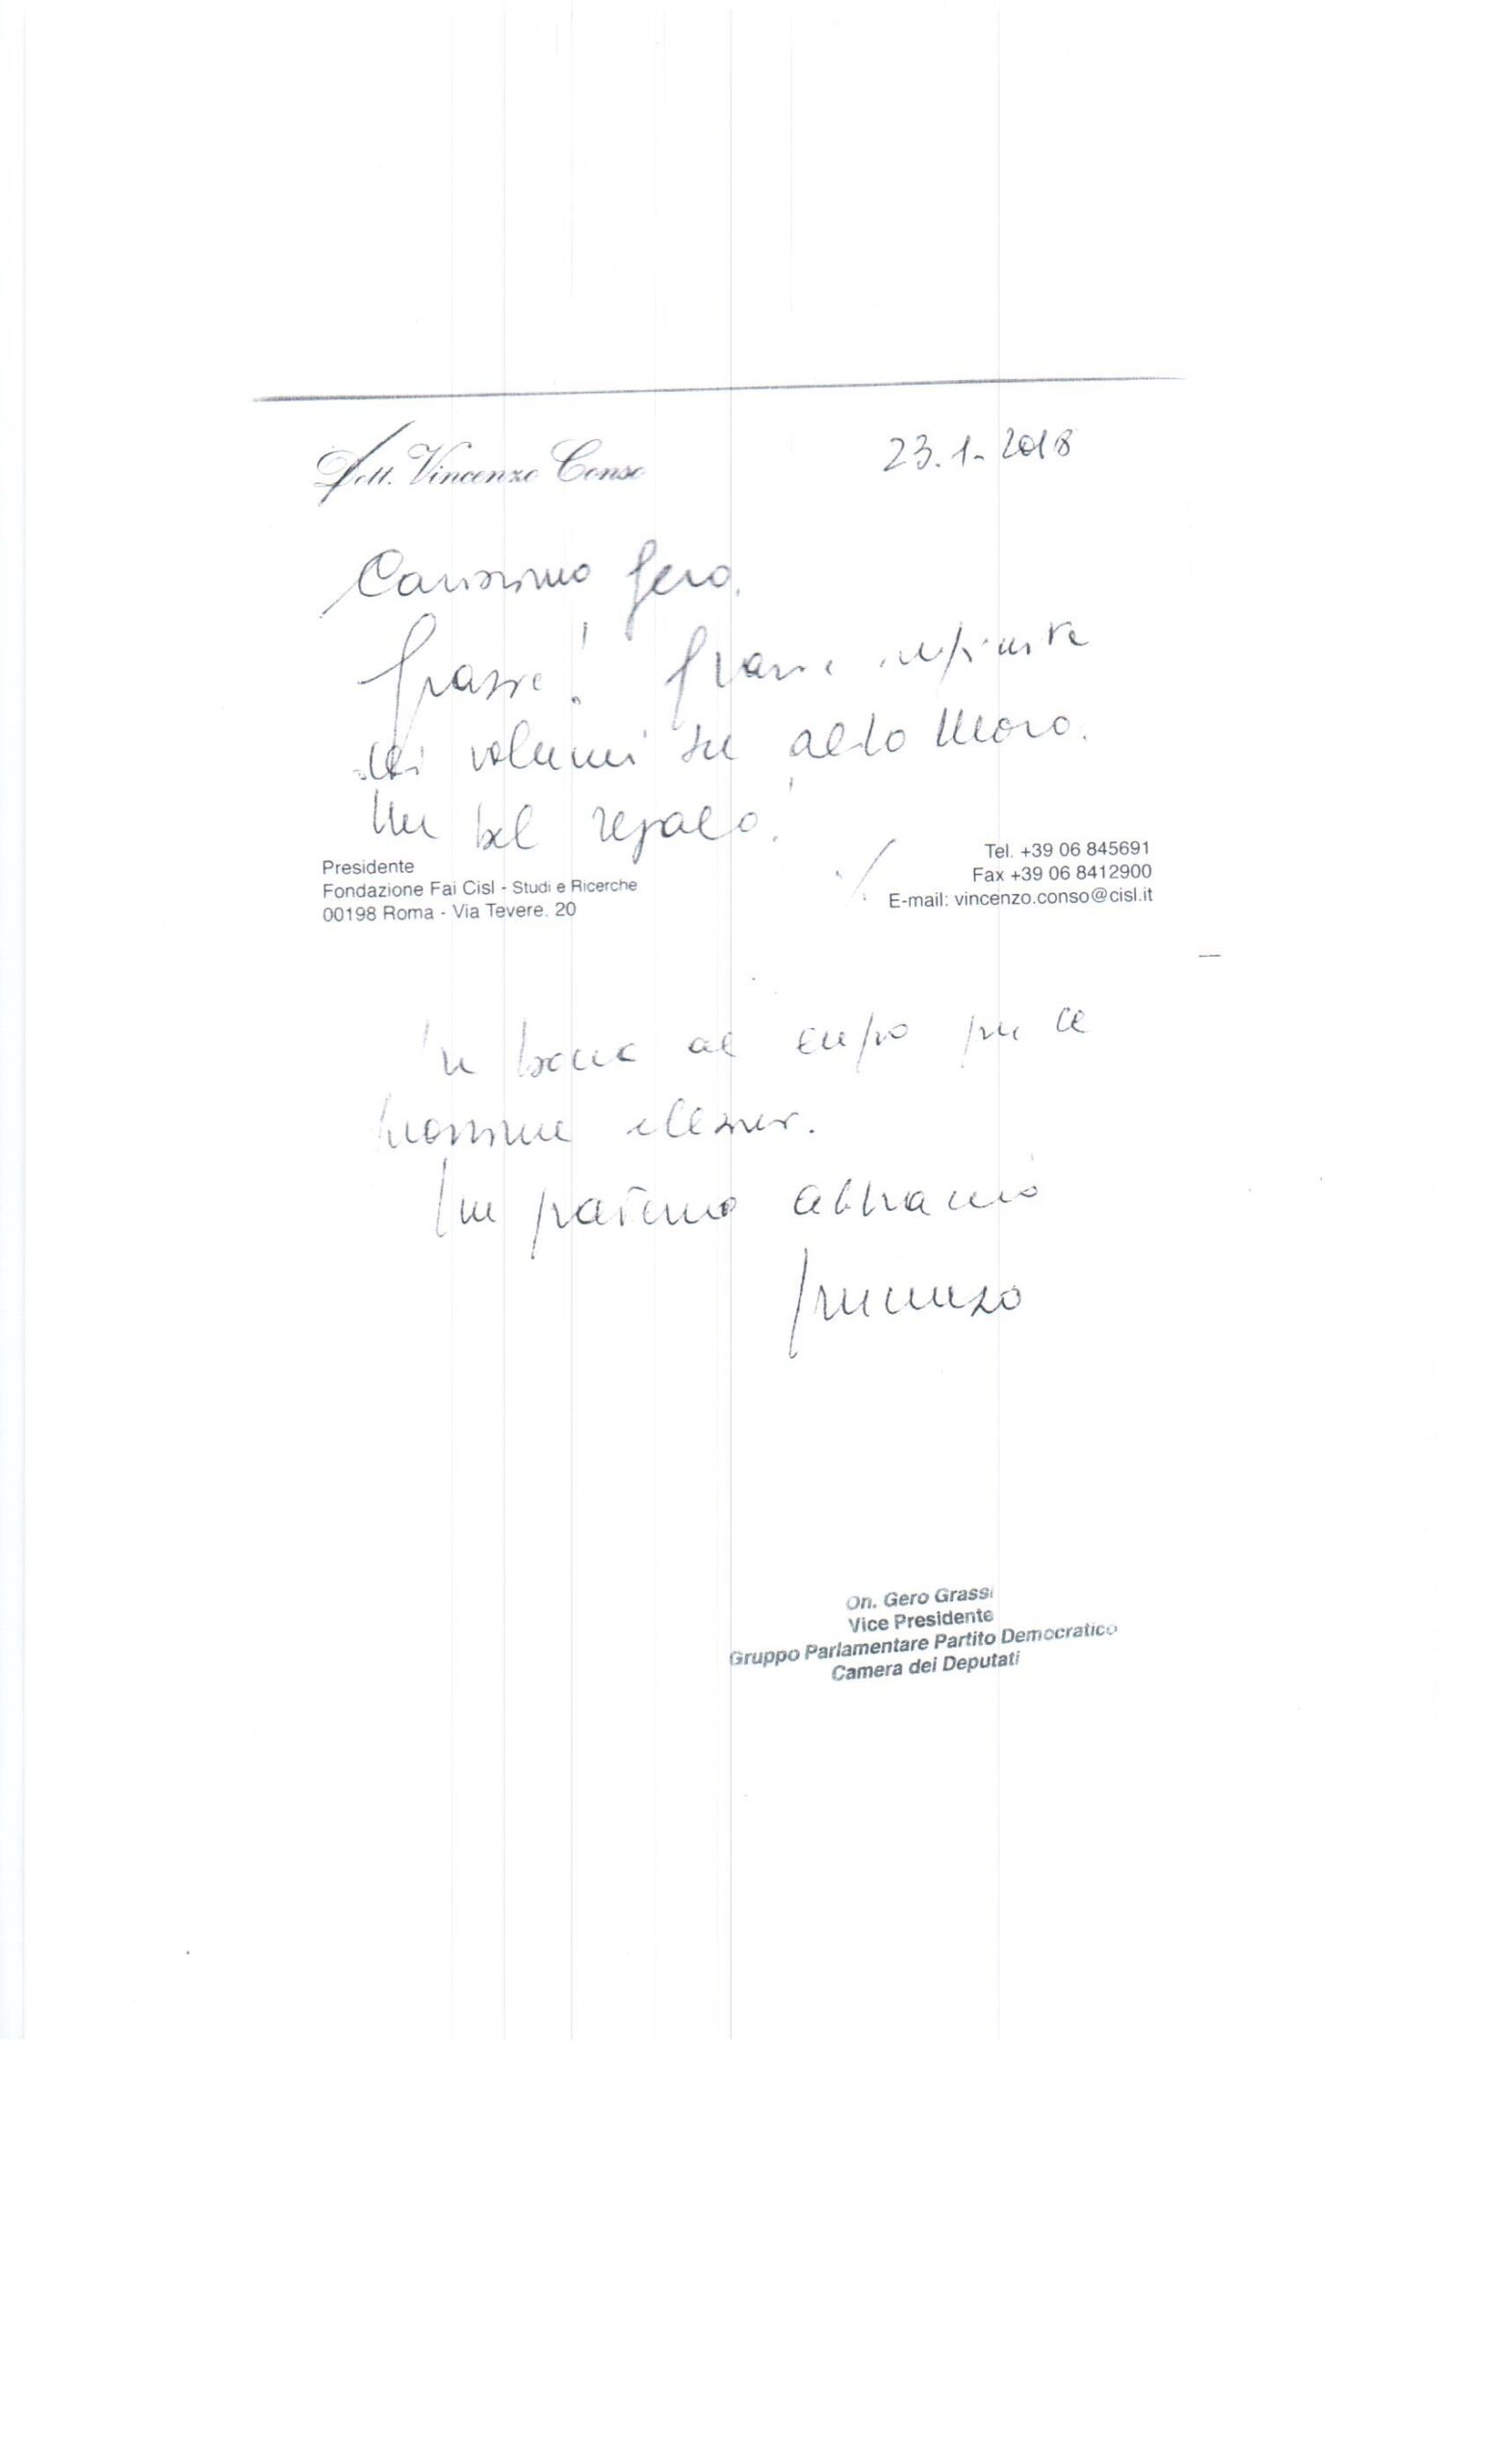 Dott. Vincenzo Conso
23.1.2018
Carissimo Gero,
Grazie! Grazie infinite
dei volumi su Aldo Moro.
Un bel regalo!
Presidente
Fondazione Fai Cisl - Studi e Ricerche
00198 Roma - Via Tevere, 20
Tel. +39 06 845691
Fax +39 06 8412900
E-mail: vincenzo.conso@cisl.it
In bocca al lupo per le
prossime elezioni.
Un fraterno abbraccio
Vincenzo
On. Gero Grassi
Vice Presidente
Gruppo Parlamentare Partito Democratico
Camera dei Deputati